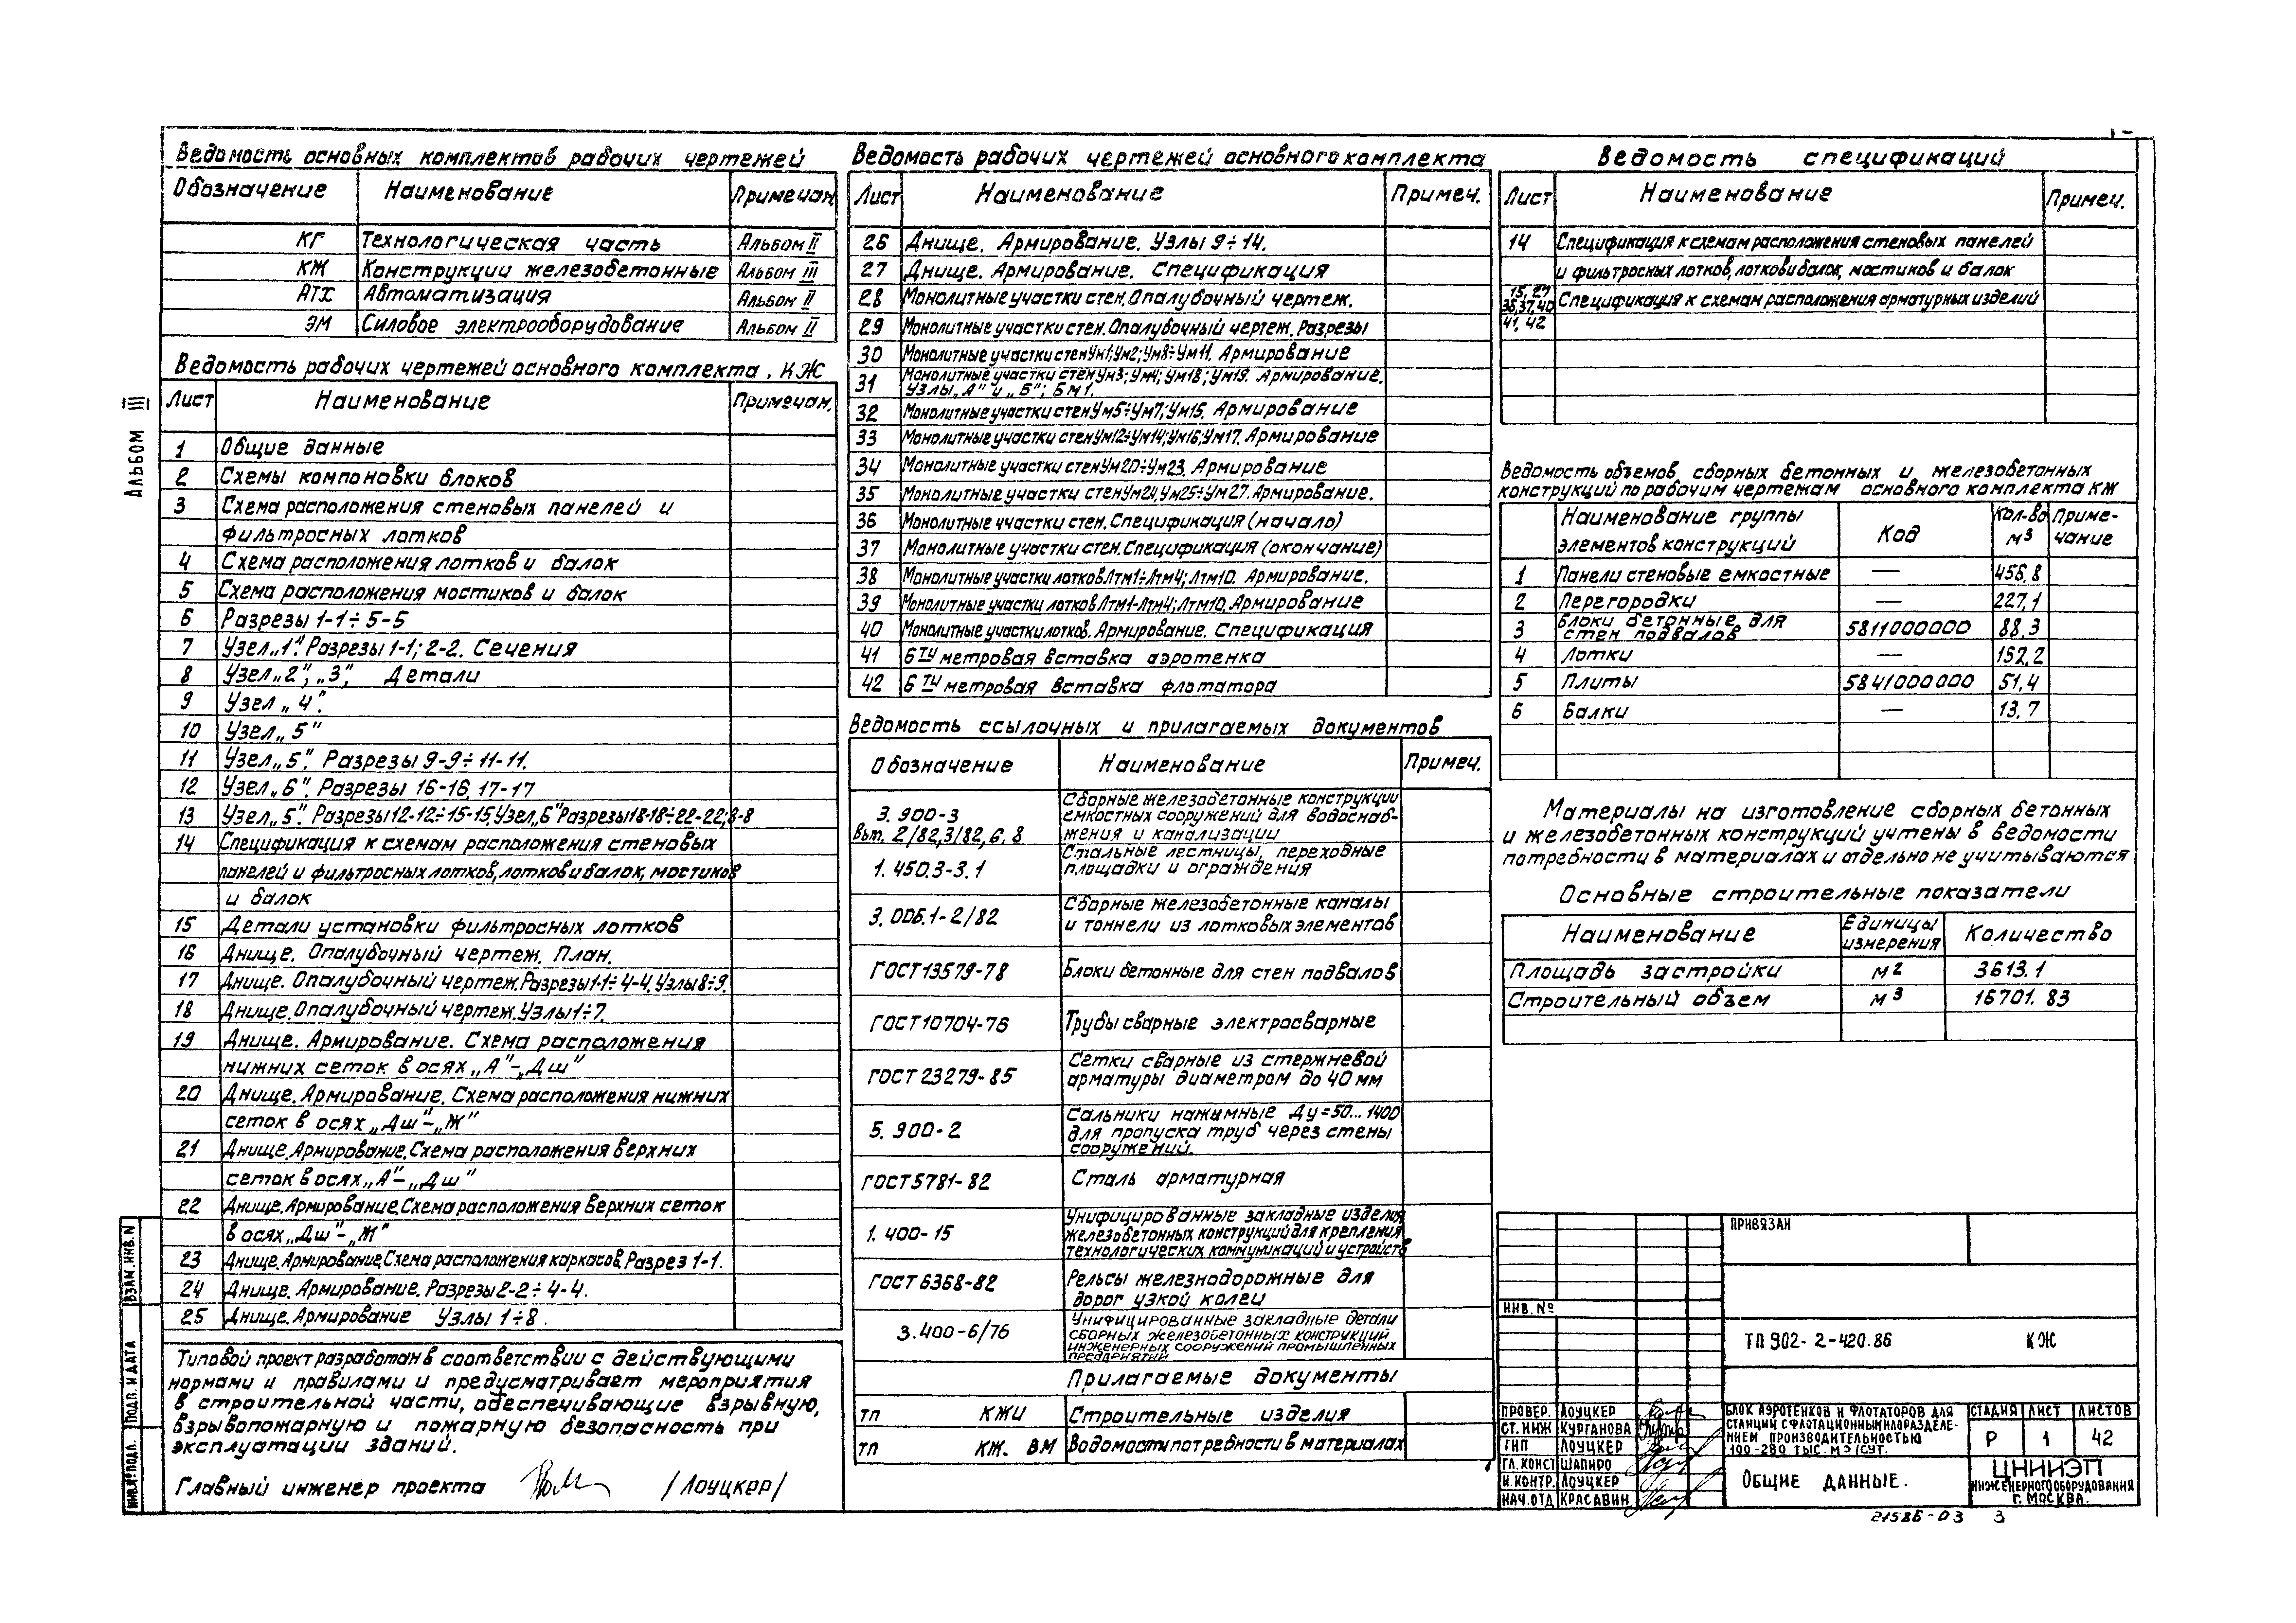 Альбом III
Ведомость основных комплектов рабочих чертежей
Обозначение Наименование Примечан.
КГ Технологическая часть Альбом II
КЖ Конструкции железобетонные Альбом III
АТХ Автоматизация Альбом II
ЭМ Силовое электрооборудование Альбом II
Ведомость рабочих чертежей основного комплекта, КЖ
Лист Наименование Примечан.
1 Общие данные
2 Схемы компоновки блоков
3 Схема расположения стеновых панелей и
фильтросных лотков
4 Схема расположения лотков и балок
5 Схема расположения мостиков и балок
6 Разрезы 1-1÷5-5
7 Узел „1". Разрезы 1-1; 2-2. Сечения
8 Узел „2", „3", Детали
9 Узел „4".
10 Узел „5"
11 Узел „5". Разрезы 9-9÷11-11.
12 Узел „6". Разрезы 16-16, 17-17
13 Узел „5". Разрезы 12-12÷15-15. Узел „6" Разрезы 18-18÷22-22; 8-8
14 Спецификация к схемам расположения стеновых
панелей и фильтросных лотков, лотков и балок, мостиков
и балок
15 Детали установки фильтросных лотков
16 Днище. Опалубочный чертеж. План.
17 Днище. Опалубочный чертеж. Разрезы 1-1÷4-4. Узлы 8÷9.
18 Днище. Опалубочный чертеж. Узлы 1÷7.
19 Днище. Армирование. Схема расположения
нижних сеток в осях „А"-„Дш"
20 Днище. Армирование. Схема расположения нижних
сеток в осях „Дш"-„Ж"
21 Днище. Армирование. Схема расположения верхних
сеток в осях „А"-„Дш"
22 Днище. Армирование. Схема расположения верхних сеток
в осях „Дш"-„Ж"
23 Днище. Армирование. Схема расположения каркасов. Разрез 1-1.
24 Днище. Армирование. Разрезы 2-2÷4-4.
25 Днище. Армирование Узлы 1÷8.
Типовой проект разработан в соответствии с действующими
нормами и правилами и предусматривает мероприятия
в строительной части, обеспечивающие взрывную,
взрывопожарную и пожарную безопасность при
эксплуатации зданий.
Главный инженер проекта /Лоуцкер/
ВЗАМ. ИНВ. N
ПОДП. И ДАТА
ИНВ. № ПОДЛ.
Ведомость рабочих чертежей основного комплекта
Лист Наименование Примеч.
26 Днище. Армирование. Узлы 9÷14.
27 Днище. Армирование. Спецификация
28 Монолитные участки стен. Опалубочный чертеж.
29 Монолитные участки стен. Опалубочный чертеж. Разрезы
30 Монолитные участки стен Ум1; Ум2; Ум8÷Ум11. Армирование
31 Монолитные участки стен Ум3; Ум4; Ум18; Ум19. Армирование.
Узлы „А" и „Б"; Бм1.
32 Монолитные участки стен Ум5÷Ум7; Ум15. Армирование
33 Монолитные участки стен Ум12÷Ум14; Ум16; Ум17. Армирование
34 Монолитные участки стен Ум20÷Ум23. Армирование
35 Монолитные участки стен Ум24, Ум25÷Ум27. Армирование.
36 Монолитные участки стен. Спецификация (начало)
37 Монолитные участки стен. Спецификация (окончание)
38 Монолитные участки лотков Лтм1÷Лтм4; Лтм10. Армирование.
39 Монолитные участки лотков Лтм1-Лтм4; Лтм10. Армирование
40 Монолитные участки лотков. Армирование. Спецификация
41 6ти метровая вставка аэротенка
42 6ти метровая вставка флотатора
Ведомость ссылочных и прилагаемых документов
Обозначение Наименование Примеч.
3.900-3 Сборные железобетонные конструкции
емкостных сооружений для водоснаб-
Вып. 2/82, 3/82, 6. 8 жения и канализации
1.450.3-3.1 Стальные лестницы, переходные
площадки и ограждения
3.006.1-2/82 Сборные железобетонные каналы
и тоннели из лотковых элементов
ГОСТ 13579-78 Блоки бетонные для стен подвалов
ГОСТ 10704-76 Трубы сварные электросварные
ГОСТ 23279-85 Сетки сварные из стержневой
арматуры диаметром до 40 мм
5.900-2 Сальники нажимные Ду=50...1400
для пропуска труб через стены
сооружений.
ГОСТ 5781-82 Сталь арматурная
1.400-15 Унифицированные закладные изделия
железобетонных конструкций для крепления
технологических коммуникаций и устройств
ГОСТ 6368-82 Рельсы железнодорожные для
дорог узкой колеи
3.400-6/76 Унифицированные закладные детали
сборных железобетонных конструкций
инженерных сооружений промышленных
предприятий
Прилагаемые документы
ТП КЖИ Строительные изделия
ТП КЖ. ВМ Водомости потребности в материалах
Ведомость спецификаций
Лист Наименование Примеч.
14 Спецификация к схемам расположения стеновых панелей
и фильтросных лотков, лотков и балок, мостиков и балок
15, 27
36, 37, 40 Спецификация к схемам расположения арматурных изделий
41, 42
Ведомость объемов сборных бетонных и железобетонных
конструкций по рабочим чертежам основного комплекта КЖ
Наименование группы элементов конструкций Код Кол-во м3 Приме-чание
1 Панели стеновые емкостные — 456.8
2 Перегородки — 227,1
3 Блоки бетонные для стен подвалов 5811000000 88,3
4 Лотки — 152,2
5 Плиты 5841000000 51,4
6 Балки — 13.7
Материалы на изготовление сборных бетонных
и железобетонных конструкций учтены в ведомости
потребности в материалах и отдельно не учитываются
Основные строительные показатели
Наименование Единицы измерения Количество
Площадь застройки м2 3613.1
Строительный объем м3 16701.83
ПРИВЯЗАН
ИНВ. №
ТП 902-2-420.86 КЖ
ПРОВЕР. ЛОУЦКЕР
СТ. ИНЖ КУРГАНОВА
ГИП ЛОУЦКЕР
ГЛ. КОНСТ ШАПИРО
Н. КОНТР. ЛОУЦКЕР
НАЧ. ОТД КРАСАВИН
БЛОК АЭРОТЕНКОВ И ФЛОТАТОРОВ ДЛЯ
СТАНЦИЙ С ФЛОТАЦИОННЫМ ИЛОРАЗДЕЛЕ-
НИЕМ ПРОИЗВОДИТЕЛЬНОСТЬЮ
100-280 ТЫС. М3/СУТ.
СТАДИЯ ЛИСТ ЛИСТОВ
Р 1 42
ОБЩИЕ ДАННЫЕ.
ЦНИИЭП
ИНЖЕНЕРНОГО ОБОРУДОВАНИЯ
Г. МОСКВА.
21586-03 3